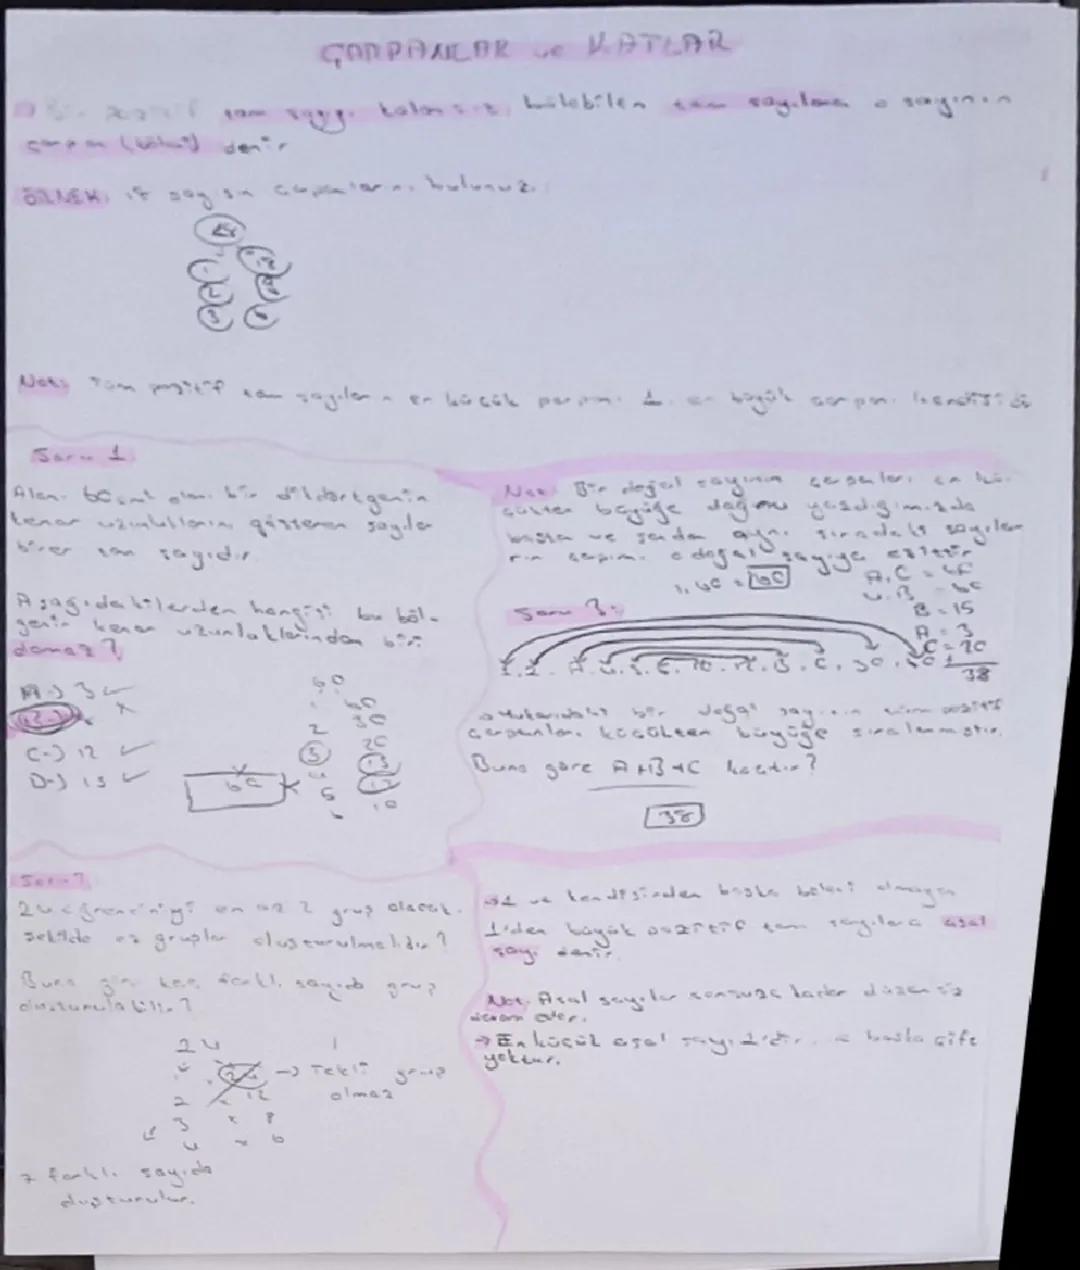 ÇARPANLAR ve KATLAR
tam sayıyı kalansız bölebilen tam sayılara o sayının
çarpan (böleni) denir
ÖRNEK: 18 sayısın çarpanlarını bulunuz.
18
1 18
2 9
3 6
Not: Tüm pozitif tam sayıların en küçük çarpanı 1, en büyük çarpanı kendisidir
Soru 1
Alanı 60 olan bir dikdörtgenin
kenar uzunluklarını gösteren sayılar
birer tam sayıdır.
Aşağıdakilerden hangisi bu böl-
genin kenar uzunluklarından biri
olamaz?
A-) 3 ✓
x
C-) 12 ✓
D-) 15 ✓
60
1 60
2 30
3 20
4 15
5 12
6 10
60
Not: Bir doğal sayının çarpanları en kü-
çükten büyüğe doğru yazdığımızda
baştan ve sondan aynı sıradaki sayıla-
rın çarpımı o doğal sayıya eşittir
1. 60 = 60
A.C = 60
4.B = 60
B = 15
A = 3
C = 20
38
Soru 3:
1. 2. A. 4. 5. 6. 10. 12. B. C. 30. 60
→ Yukarıdaki bir doğal sayının tüm pozitif
çarpanları küçükten büyüğe sıralanmıştır.
Buna göre A+B+C kaçtır?
38
Soru 2
24 öğrenciniyi en az 2 grup olacak
şekilde gruplar oluşturulmalıdır?
Buna göre kaç farklı sayıda grup
oluşturulabilir?
24
1 x 24 → Tekli grup
olmaz
2 x 12
3 x 8
4 x 6
7 farklı sayıda
oluşturulur.
→ 1 ve kendisinden başka böleni olmayan
1'den büyük pozitif tam sayılara asal
sayı denir.
Not: Asal sayılar sonsuza kadar düzensiz
devam eder.
→ En küçük asal sayı 2'dir. başka çift
yoktur.